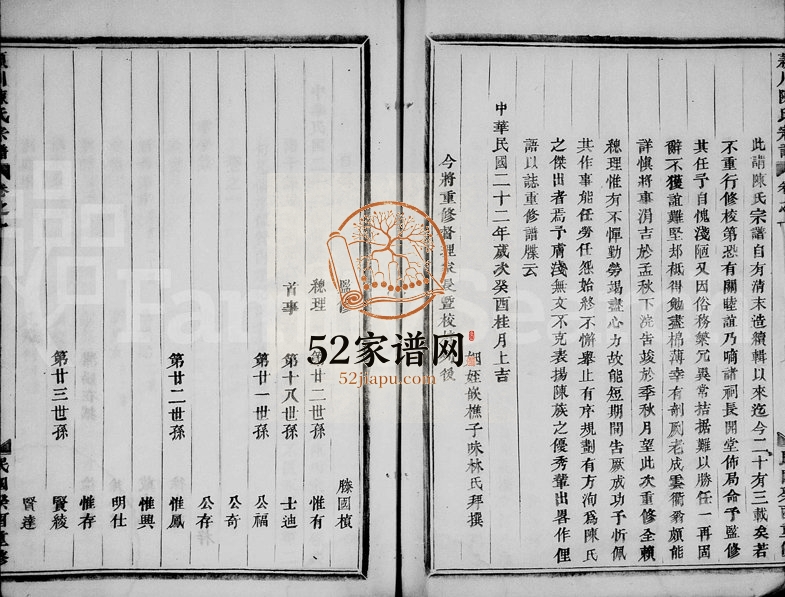 潁川陳氏宗譜
卷之一
民國癸酉重修
此請陳氏宗譜自有清末造續輯以來迄今二十有三載矣若
不重行修校第恐有關睦誼乃嘀諸祠長開堂佈局命予監修
其任予自愧淺陋又因俗務繁冗異常拮据難以勝任一再固
辭不獲誼難堅却祗得勉盡棉薄幸有剞劂老成雲衢翁頗能
詳慎將事涓吉於孟秋下浣告竣於季秋月望此次重修全賴
總理惟有不憚勤勞竭盡心力故能短期間告厥成功予忻佩
其作事能任勞任怨始終不懈舉止有序規劃有方洵爲陳氏
之傑出者焉予膚淺無文不克表揚陳族之優秀輩出畧作俚
語以誌重修譜牒云
中華民國二十二年歲次癸酉桂月上吉
姻姪嵌樵子味林氏拜撰
今將重修督理
長暨校
後
總理
第廿二世孫
滕國楨
惟有
首事
第十八世孫
士迪
第廿一世孫
公福
公奇
公存
第廿二世孫
惟鳳
惟興
明仕
惟存
第廿三世孫
賢綾
賢達
潁川陳氏宗譜
卷之一
民國癸酉重修
52家谱网
52jiapu.com